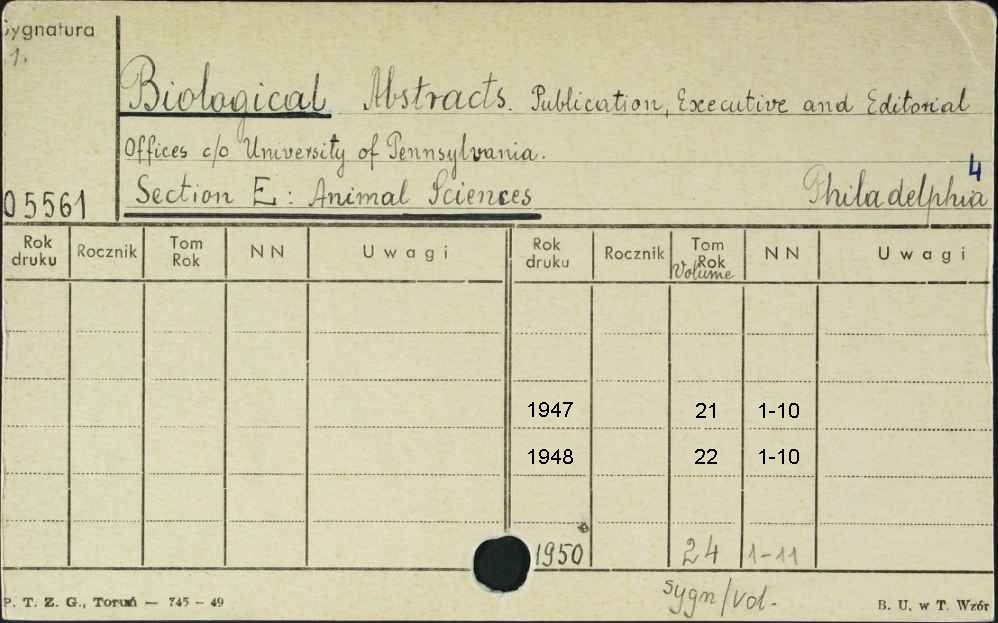 Sygnatura
1.
Biological Abstracts. Publication, Executive and Editorial
Offices c/o University of Pennsylvania.
4
05561 Section E: Animal Sciences Philadelphia
Rok druku Rocznik Tom Rok NN Uwagi Rok druku Rocznik Tom Rok Volume NN Uwagi
1947 21 1-10
1948 22 1-10
1950 24 1-11
sygn/vol.
P. T. Z. G., Toruń — 745 - 49 B. U. w T. Wzór